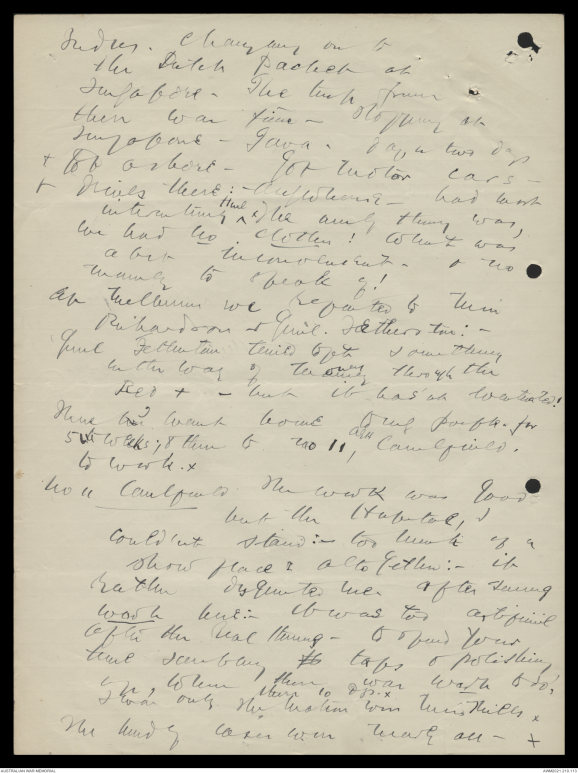 Indies. Changing on to
the Dutch Packet at
Singapore - The trip from
there was fine - Stopping at
Singapore - Java - day or two days
+ got ashore - Got motor cars -
+ drives there: - had most
interesting time, The only thing was,
we had no clothes! What was
a bit inconvenient - & no
money to speak of!
At Melbourne we reported to
Richardson & Genl. Fetherston: -
Genl Fetherston tried to get something
in the way of through the
+ - but it has not
Then we went home for
5 weeks, & then to no 11, Caulfield.
to work. x
No 11 Caulfield The work was good
but the Hospital, I
couldn't stand: - too much of a
show place altogether: - it
rather disgusted me after seeing
work here: - it was too artificial
after the real thing - to spend your
time scrubbing taps & polishing
up, when there was work to do,
I was only there 10 dys. x
The matron was Miss Mills x
The cases were nearly all - +
AUSTRALIAN WAR MEMORIAL
AWM2021.219.117